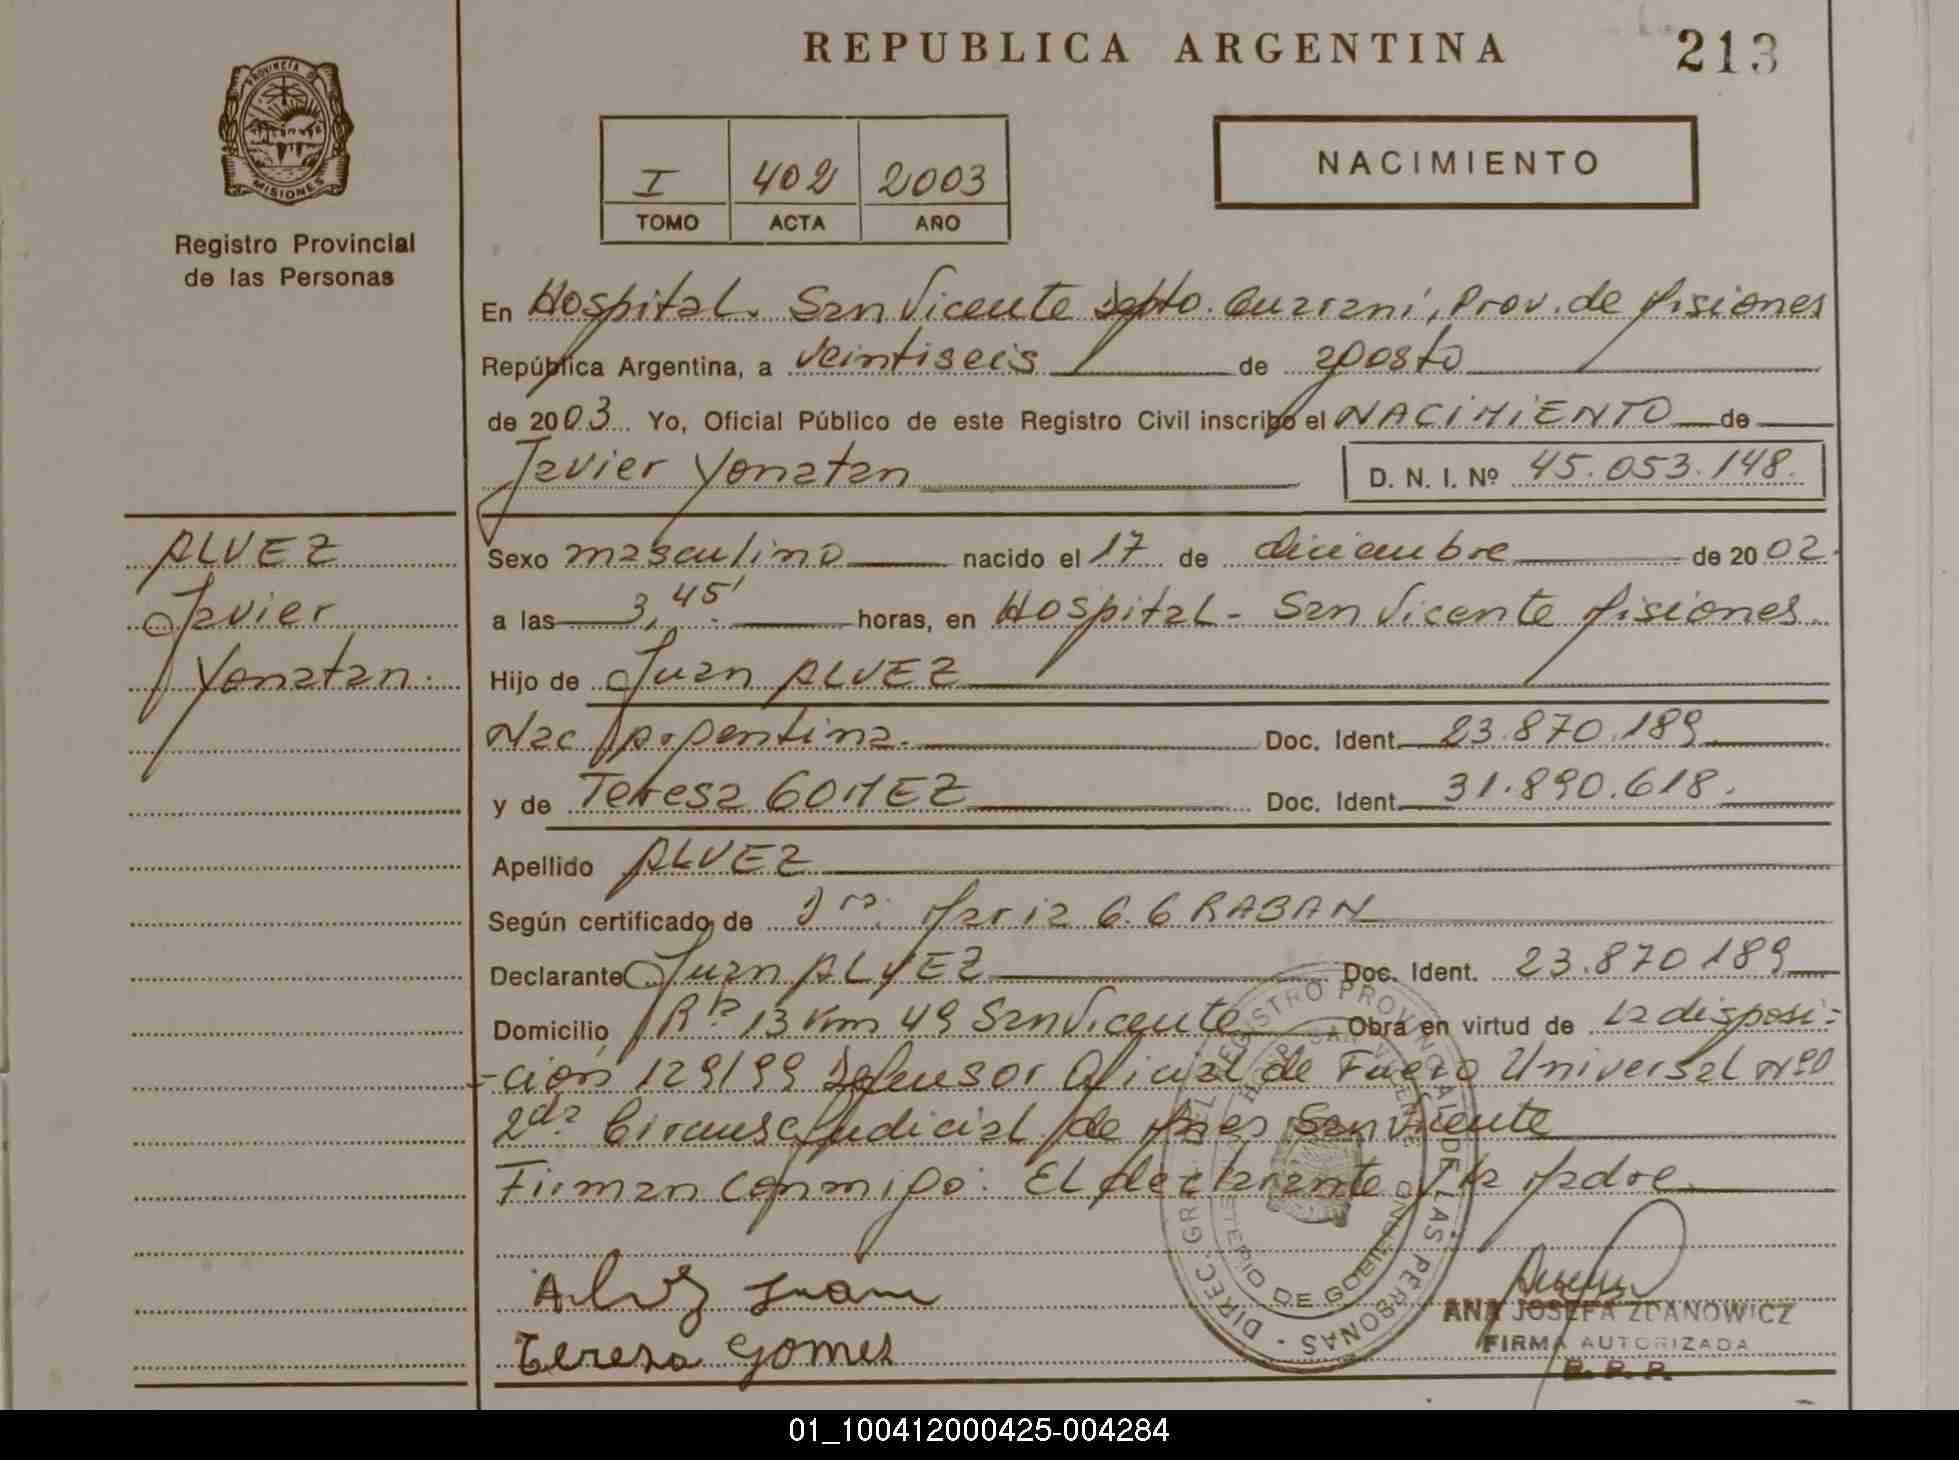 REPUBLICA ARGENTINA
213
PROVINCIA D
MISIONES
Registro Provincial
de las Personas
I 402 2003
TOMO ACTA AÑO
NACIMIENTO
En Hospital. San Vicente Depto. Guaraní, Prov. de Misiones
República Argentina, a veintiseis de agosto
de 2003 Yo, Oficial Público de este Registro Civil inscribo el NACIMIENTO de
Javier Yonatan D. N. I. Nº 45.053.148.
ALVEZ
Javier
Yonatan.
Sexo masculino nacido el 17 de diciembre de 2002.
a las 3,45' horas, en Hospital - San Vicente Misiones.
Hijo de Juan ALVEZ
Nac Argentina. Doc. Ident. 23.870.189.
y de Teresa GOMEZ Doc. Ident. 31.890.618.
Apellido ALVEZ
Según certificado de Dra. Maria G. GRABAN
Declarante Juan ALVEZ Doc. Ident. 23.870.189
Domicilio Rta 13 Km 49 San Vicente Obra en virtud de la disposi-
-ción 129/99 Defensor Oficial de Fuero Universal
2da Circunsc Judicial de Mnes San Vicente
Firman conmigo: El declarante y la Madre.
Alvez Juan
Teresa Gomes
DIREC. GRAL. DEL REGISTRO PROVINCIAL DE LAS PERSONAS
SAN VICENTE
DE GOBIERNO
ANA JOSEFA ZDANOWICZ
FIRMA AUTORIZADA
R. P. P.
01_100412000425-004284